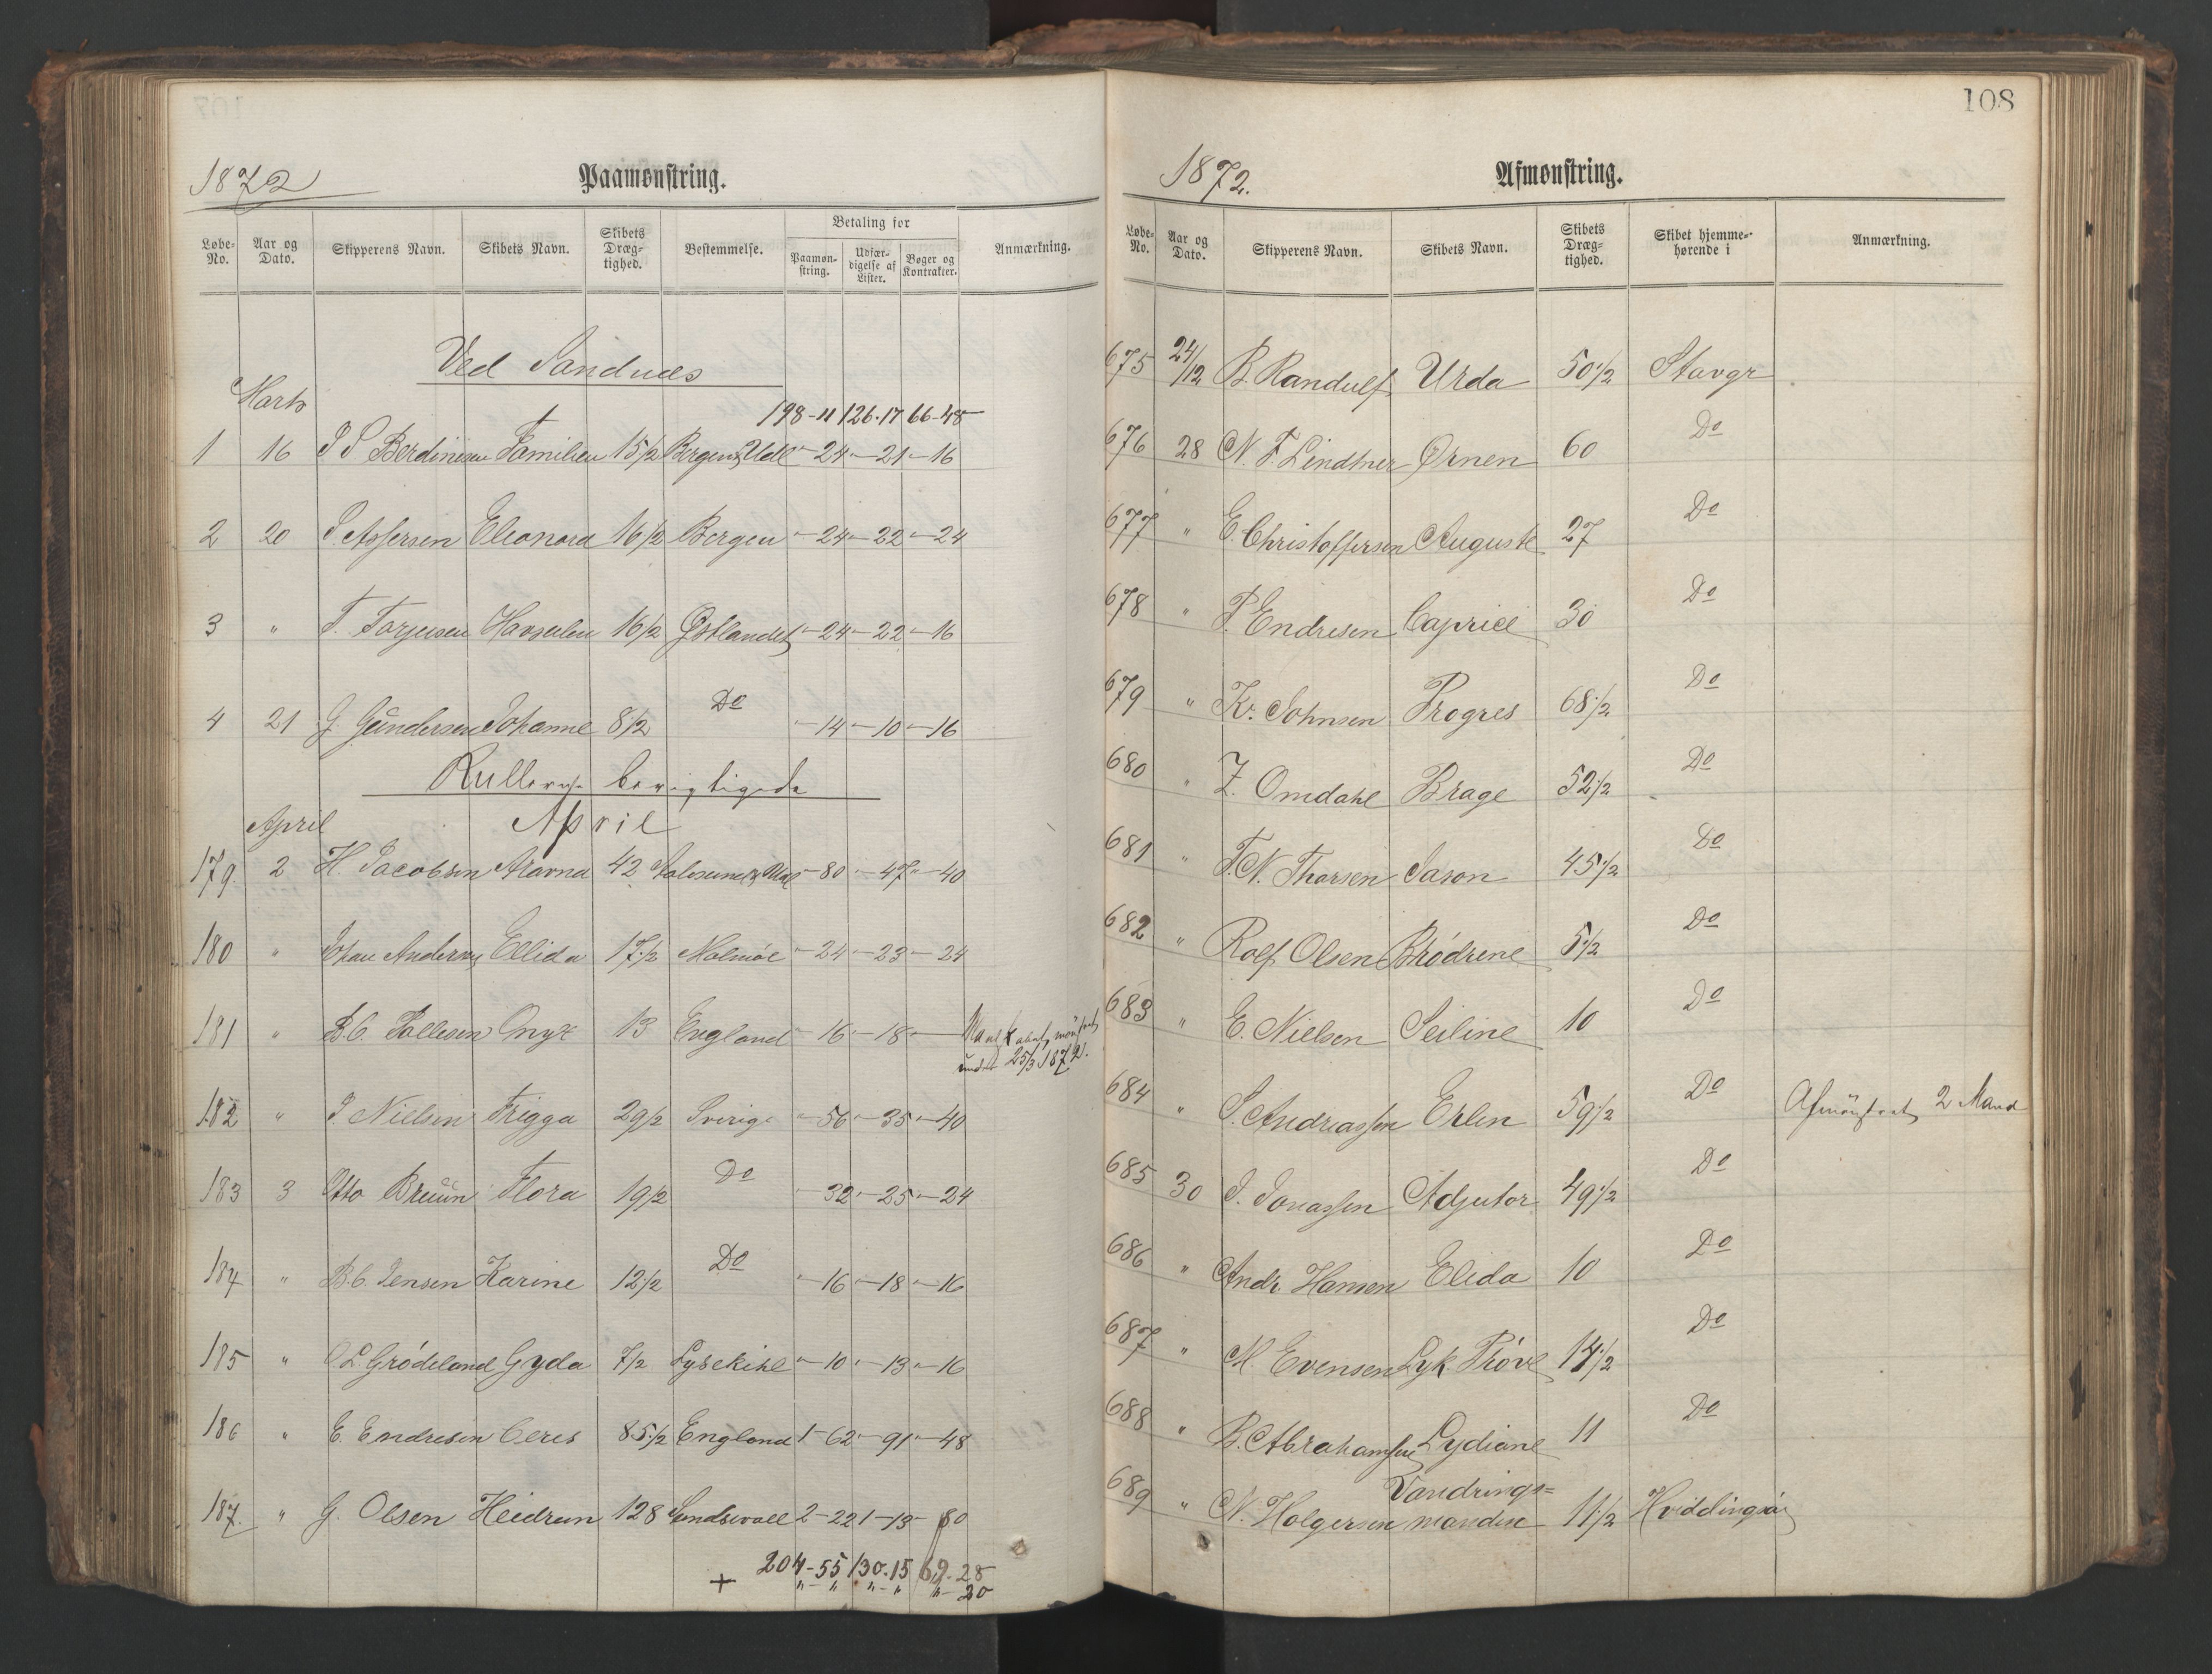 1872 Paamønstring.
Løbe-No. Aar og Dato. Skipperens Navn. Skibets Navn. Skibets Dræg-tighed. Bestemmelse. Betaling for Paamøn-string. Udfær-digelse af Lister. Bøger og Kontrakter. Anmærkning.
Ved Sandnæs
Marts
198-11 126.17 66-48
1 16 Familien 15 1/2 Bergen & Udl "-24 "-21 "-16
2 20 Eleonora 16 1/2 Bergen "-24 "-22 "-24
3 " T. Torjusen Havsulen 16 1/2 Østlandet "-24 "-22 "-16
4 21 G. Gundersen Johanne 8 1/2 Do "-14 "-10 "-16
Rullerne berigtigede
April April
179. 2 H. Jacobsen Aravna 42 Aalesund & Udl "-80 "-47 "-40
180 " Johan Andersen Ellida 17 1/2 Malmöe "-24 "-23 "-24
181 " B.C. Tollesen Onyx 13 England "-16 "-18 "-
under 25/3 1872.
182 " J Nielsen Frigga 29 1/2 Sverige "-56 "-35 "-40
183 3 Otto Bruun Flora 19 1/2 Do "-32 "-25 "-24
184 " B.C. Jensen Karine 12 1/2 Do "-16 "-18 "-16
185 " O.L. Grödeland Gyda 7 1/2 Lysekihl "-10 "-13 "-16
186 " E. Endresen Ceres 85 1/2 England 1-62 "-91 "-48
187. " G. Olsen Heidrun 128 Sundsvall 2-22 1-13 "-80
204-55 130.15 69.28
+ "-" "-" "-20
108
1872. Afmønstring.
Løbe-No. Aar og Dato. Skipperens Navn. Skibets Navn. Skibets Dræg-tighed. Skibet hjemme-hørende i Anmærkning.
675 24/12 B. Randulf Urda 50 1/2 Stavgr
676 28 N. F. Lindtner Ørnen 60 Do
677 " E. Christoffersen Auguste 27 Do
678 " P. Endresen Caprice 30 Do
679 " Kr. Johnsen Progres 68 1/2 Do
680 " Z. Omdahl Brage 52 1/2 Do
681 " T.N. Thorsen Jason 45 1/2 Do
682 " Rolf Olsen Brödrene 5 1/2 Do
683 " E. Nielsen Seiline 10 Do
684 " S. Andreassen Erlen 59 1/2 Do Afmönstret 2 Mand
685 30 J. Jonassen Adjutor 49 1/2 Do
686 " Andr. Hansen Elida 10 Do
687 " M. Evensen Lyk. Pröve 14 1/2 Do
688 " B. Abrahamsen Lydiane 11 Do
689 " N. Holgersen Vandrings= manden 11 1/2 Hviddingsö